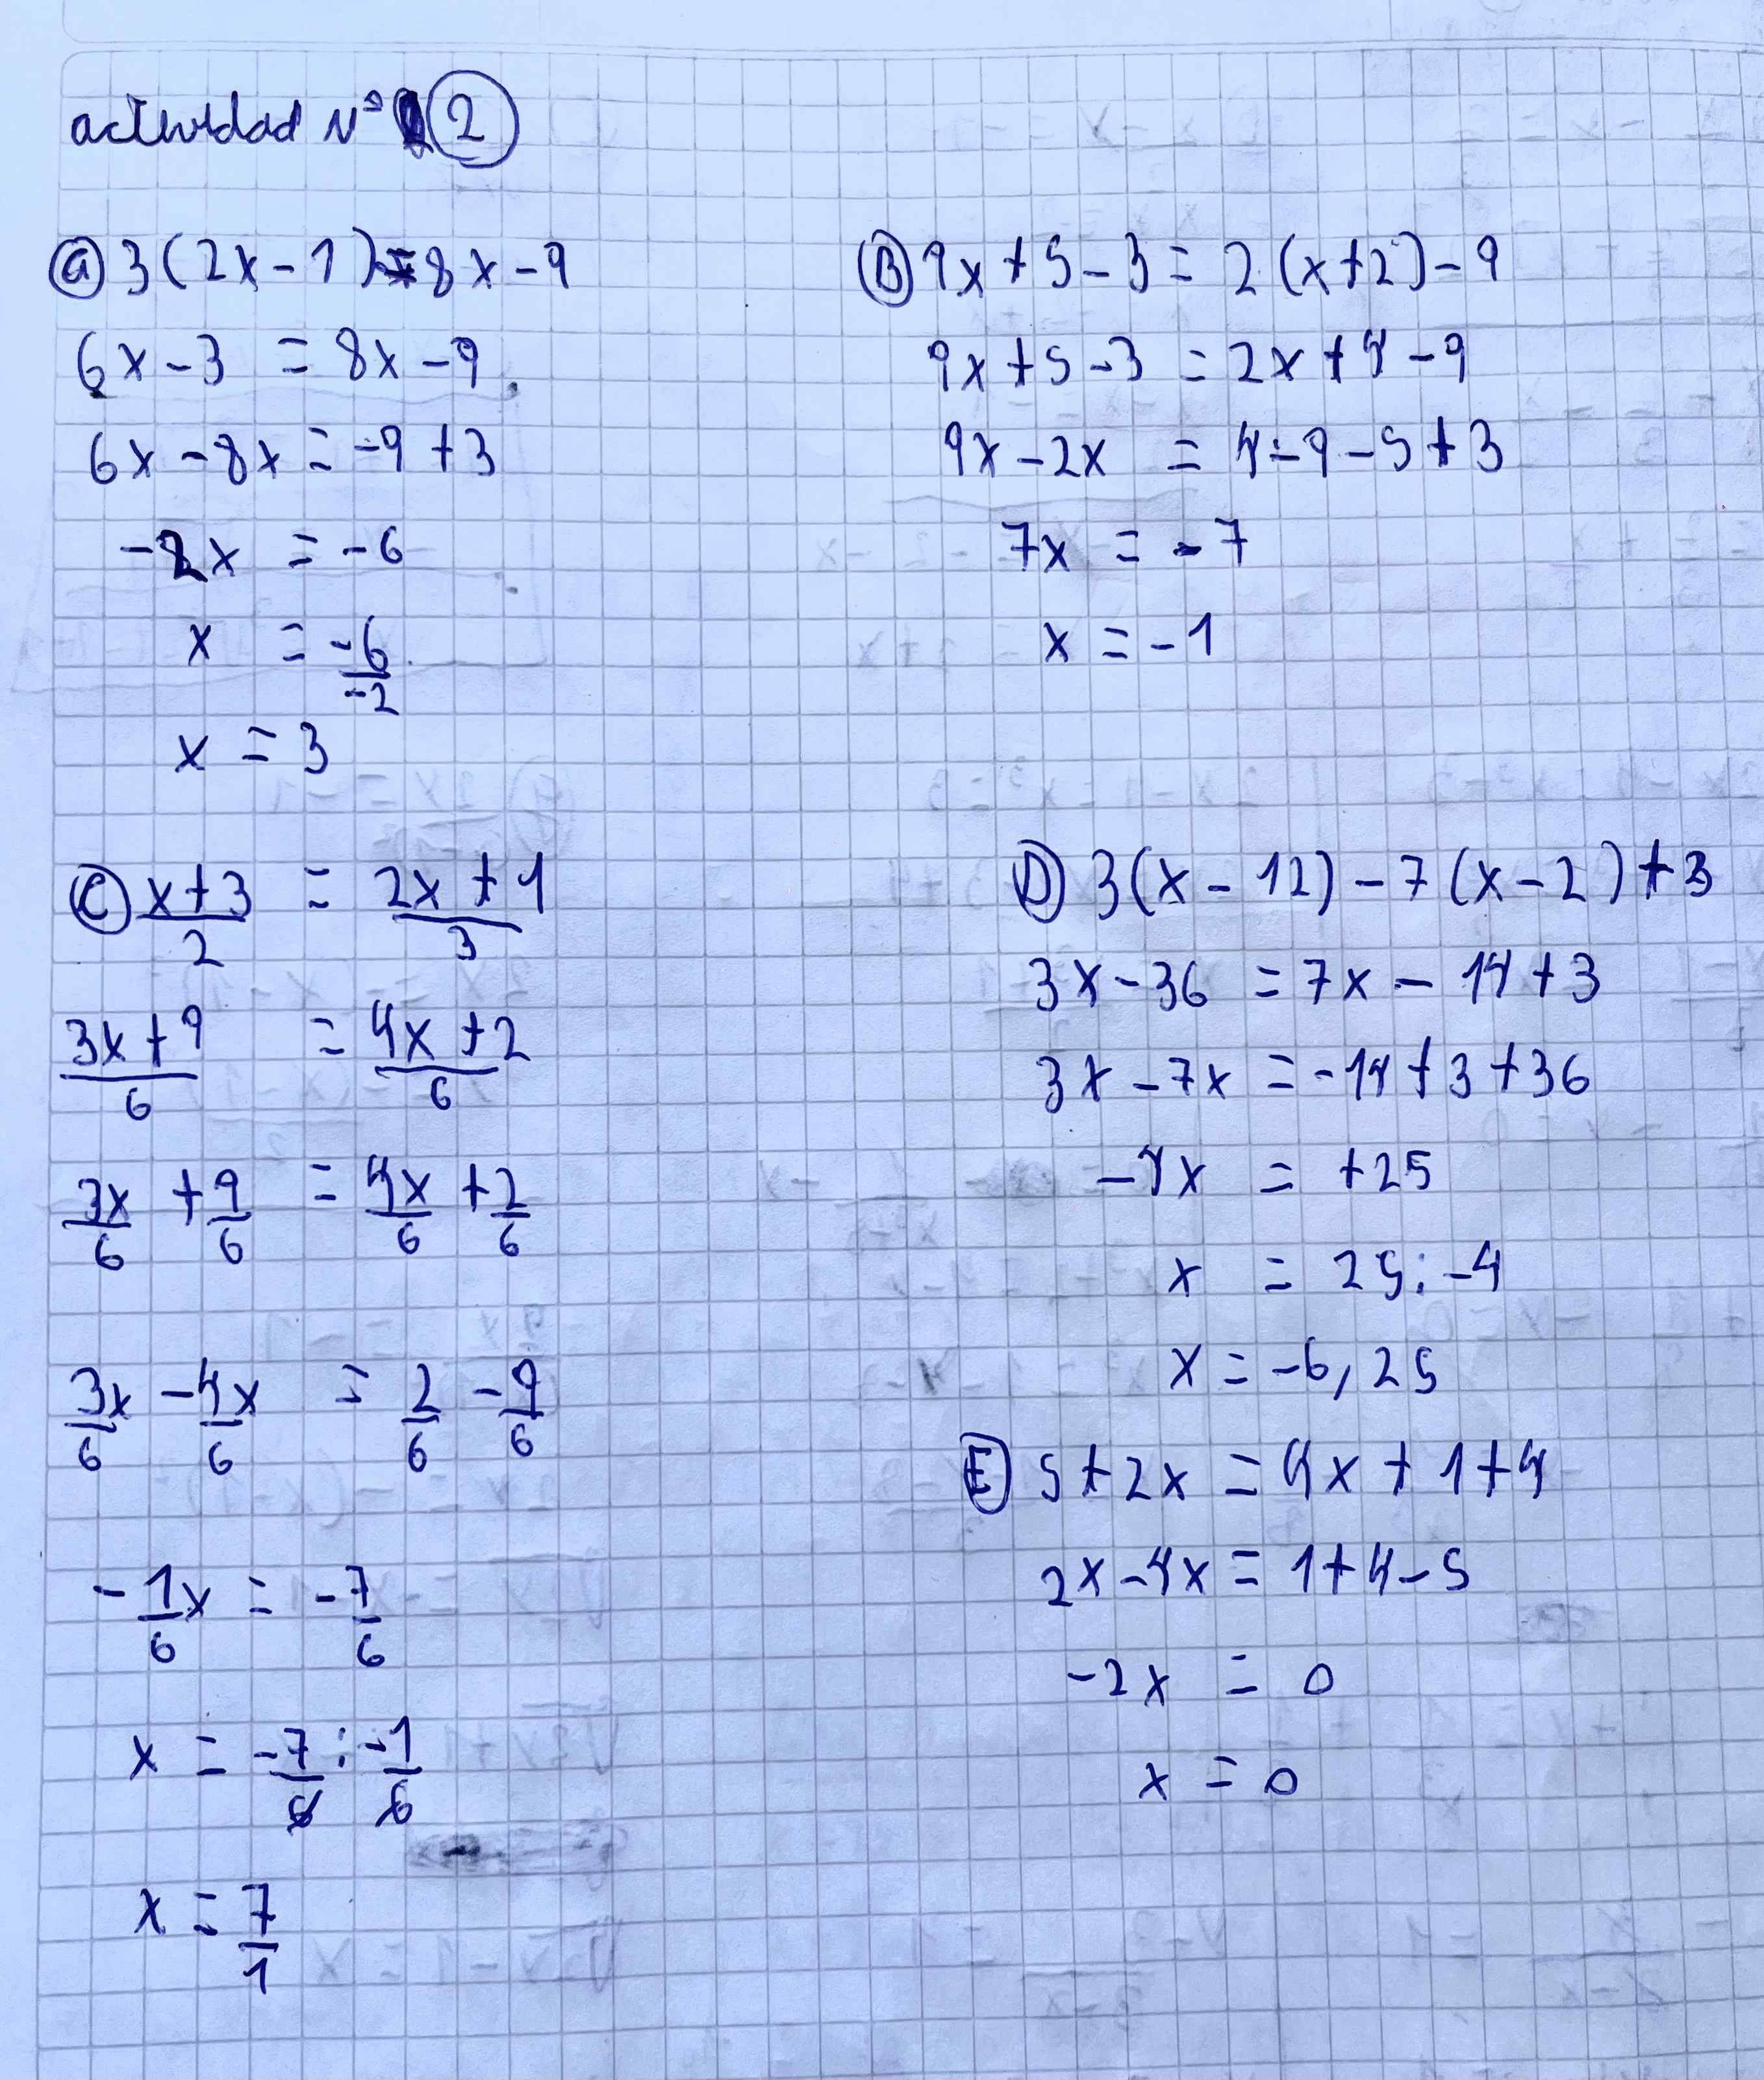 actividad Nº 2
a 3(2x-1)=8x-9
6x-3 = 8x-9
6x-8x=-9+3
-2x = -6
x = -6/-2
x = 3
B 9x+5-3=2(x+2)-9
9x+5-3=2x+4-9
9x-2x = 4-9-5+3
7x = -7
x = -1
C x+3/2 = 2x+1/3
3x+9/6 = 4x+2/6
3x/6 +9/6 = 4x/6 +2/6
3x/6 -4x/6 = 2/6 -9/6
-1/6x = -7/6
x = -7/6 : -1/6
x = 7/1
D 3(x-12)-7(x-2)+3
3x-36=7x-14+3
3x-7x=-14+3+36
-4x = +25
x = 25:-4
x=-6,25
E 5+2x=4x+1+4
2x-4x=1+4-5
-2x = 0
x = 0